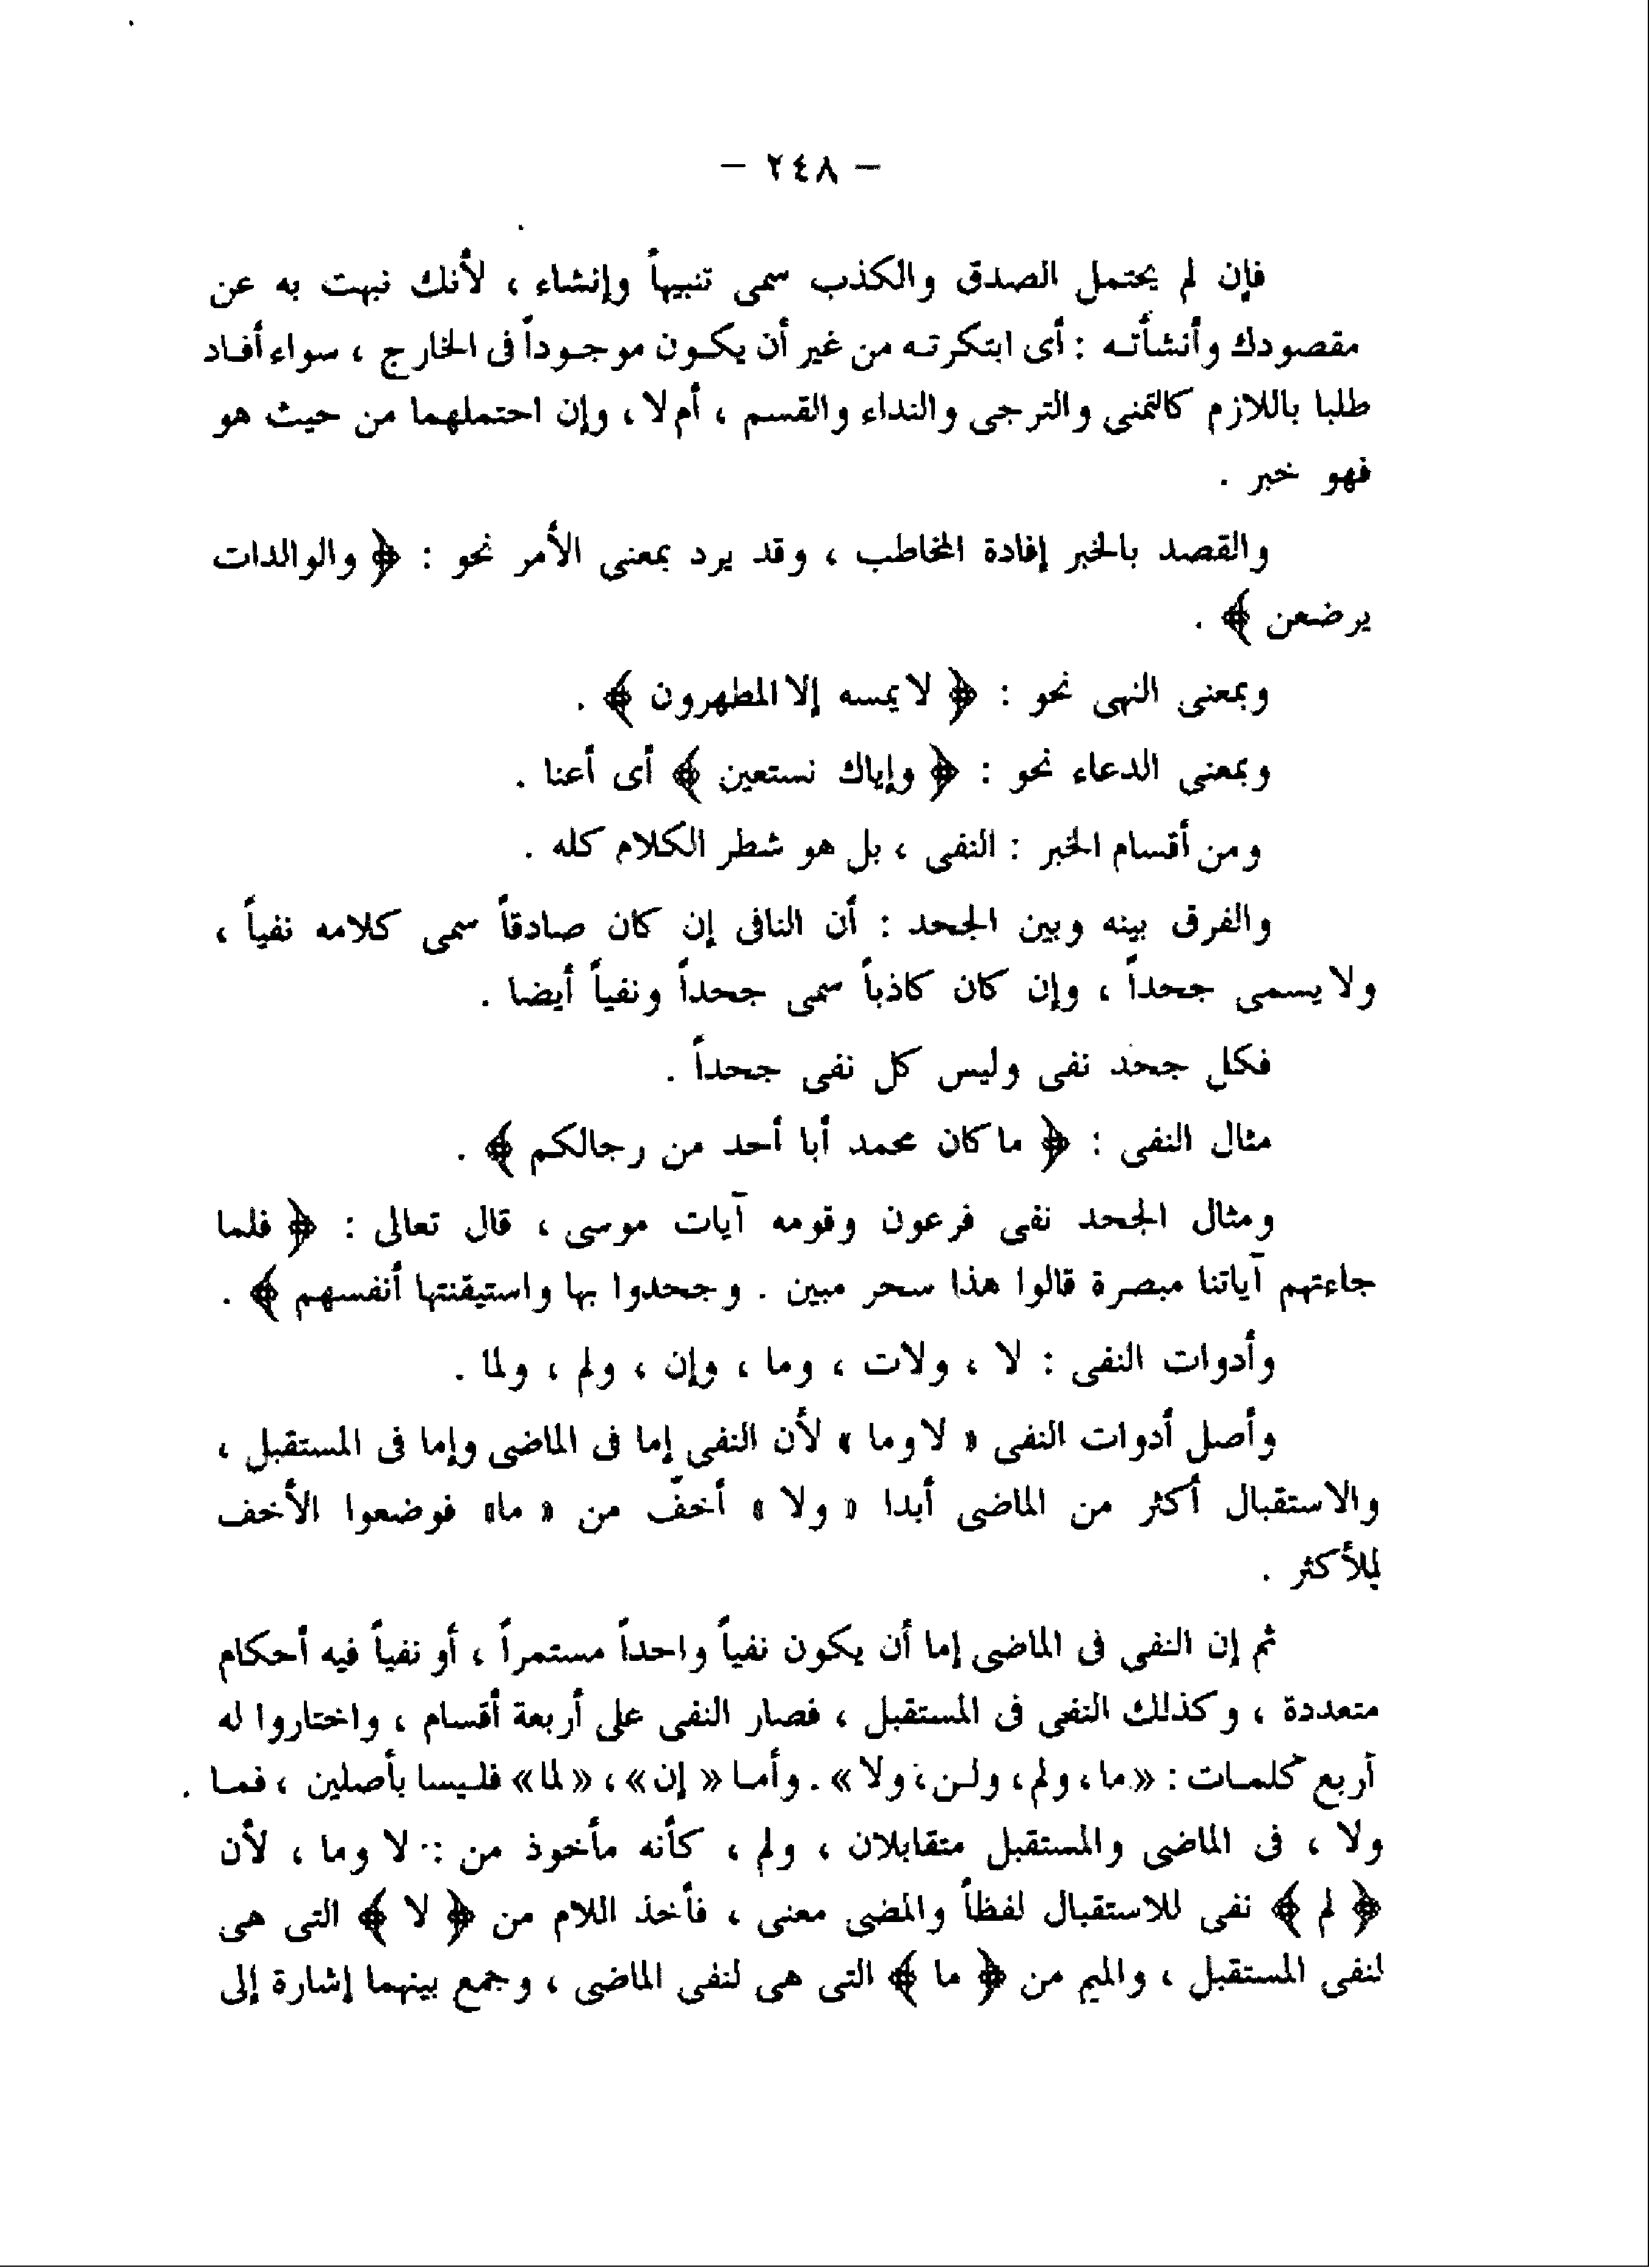 — ٢٤٨ —
فإن لم يحتمل الصدق والكذب سمى تنبيهاً وإنشاء ، لأنك نبهت به عن
مقصودك وأنشأته : أى ابتكرته من غير أن يكون موجوداً فى الخارج ، سواء أفاد
طلبا باللازم كالتمنى والترجى والنداء والقسم ، أم لا ، وإن احتملهما من حيث هو
فهو خبر .
والقصد بالخبر إفادة المخاطب ، وقد يرد بمعنى الأمر نحو : ﴿ والوالدات
يرضعن ﴾ .
وبمعنى النهى نحو : ﴿ لا يمسه إلا المطهرون ﴾ .
وبمعنى الدعاء نحو : ﴿ وإياك نستعين ﴾ أى أعنا .
ومن أقسام الخبر : النفى ، بل هو شطر الكلام كله .
والفرق بينه وبين الجحد : أن النافى إن كان صادقاً سمى كلامه نفياً ،
ولا يسمى جحداً ، وإن كان كاذباً سمى جحداً ونفياً أيضا .
فكل جحد نفى وليس كل نفى جحداً .
مثال النفى : ﴿ ما كان محمد أبا أحد من رجالكم ﴾ .
ومثال الجحد نفى فرعون وقومه آيات موسى ، قال تعالى : ﴿ فلما
جاءتهم آياتنا مبصرة قالوا هذا سحر مبين . وجحدوا بها واستيقنتها أنفسهم ﴾ .
وأدوات النفى : لا ، ولات ، وما ، وإن ، ولم ، ولما .
وأصل أدوات النفى « لا وما » لأن النفى إما فى الماضى وإما فى المستقبل ،
والاستقبال أكثر من الماضى أبدا « ولا » أخفّ من « ما» فوضعوا الأخف
للأكثر .
ثم إن النفى فى الماضى إما أن يكون نفياً واحداً مستمراً ، أو نفياً فيه أحكام
متعددة ، وكذلك النفى فى المستقبل ، فصار النفى على أربعة أقسام ، واختاروا له
أربع كلمات : « ما ، ولم ، ولن ، ولا » . وأما « إن » ، « لما » فليسا بأصلين ، فما
ولا ، فى الماضى والمستقبل متقابلان ، ولم ، كأنه مأخوذ من : لا وما ، لأن
﴿ لم ﴾ نفى للاستقبال لفظاً والمضى معنى ، فأخذ اللام من ﴿ لا ﴾ التى هى
لنفى المستقبل ، والميم من ﴿ ما ﴾ التى هى لنفى الماضى ، وجمع بينهما إشارة إلى